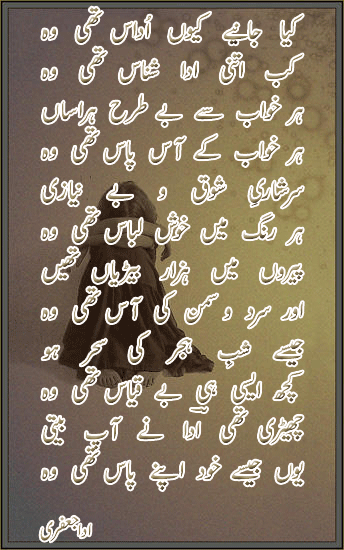 کیا جانیے کیوں اُداس تھی وہ
کب اتنی ادا شناس تھی وہ
ہر خواب سے بے طرح ہراساں
ہر خواب کے آس پاس تھی وہ
سرشاریِ شوق و بے نیازی
ہر رنگ میں خوش لباس تھی وہ
پیروں میں ہزار بیڑیاں تھیں
اور سرو و سمن کی آس تھی وہ
جیسے شبِ ہجر کی سحر ہو
کچھ ایسی ہی بے قیاس تھی وہ
چھیڑی تھی اداؔ نے آپ بیتی
یوں جیسے خود اپنے پاس تھی وہ
ادا جعفری